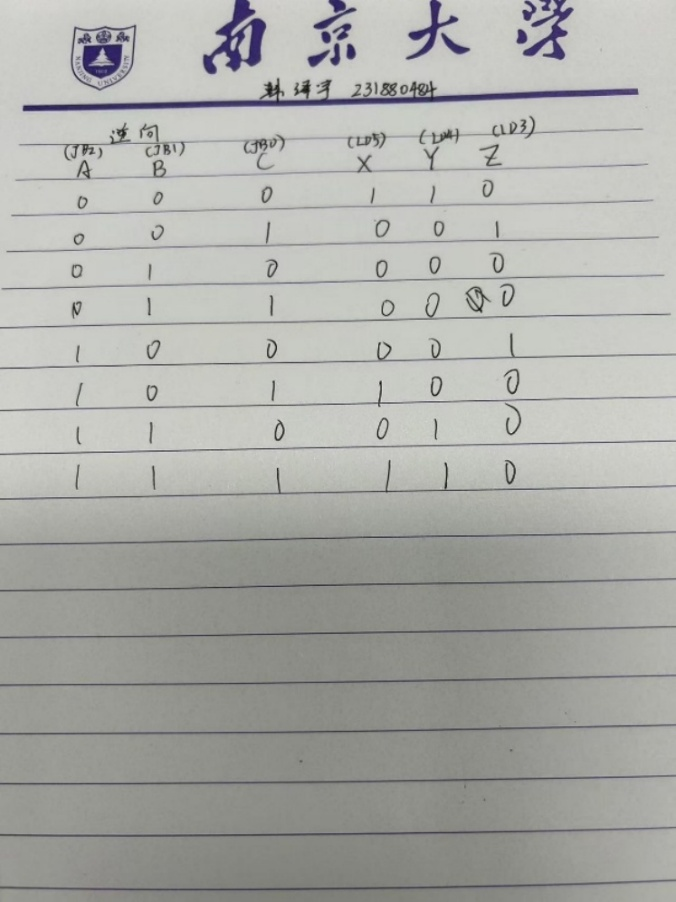 南京大学
NANJING UNIVERSITY
231880484
逆向
(JB2) (JB1) (JB0) (LD5) (LD4) (LD3)
A B C X Y Z
0 0 0 1 1 0
0 0 1 0 0 1
0 1 0 0 0 0
0 1 1 0 0 0
1 0 0 0 0 1
1 0 1 1 0 0
1 1 0 0 1 0
1 1 1 1 1 0